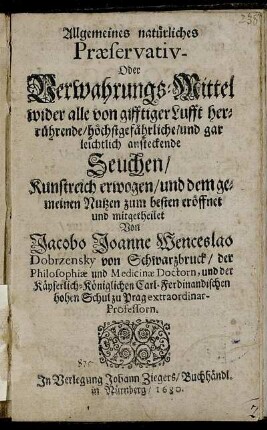 Allgemeines natürliches
Præservativ-
Oder
Verwahrungs-Mittel
wider alle von gifftiger Lufft her-
rührende/ höchstgefährliche/ und gar
leichtlich ansteckende
Seuchen/
Kunstreich erwogen/ und dem ge-
meinen Nutzen zum besten eröffnet
und mitgetheilet
Von
Jacobo Joanne Wenceslao
Dobrzensky von Schwarzbruck/ der
Philosophiæ und Medicinæ Doctorn, und der
Käyserlich-Königlichen Carl-Ferdinandischen
hohen Schul zu Prag extraordinar-
Professorn.
In Verlegung Johann Ziegers/ Buchhändl.
in Nürnberg/ 1680.